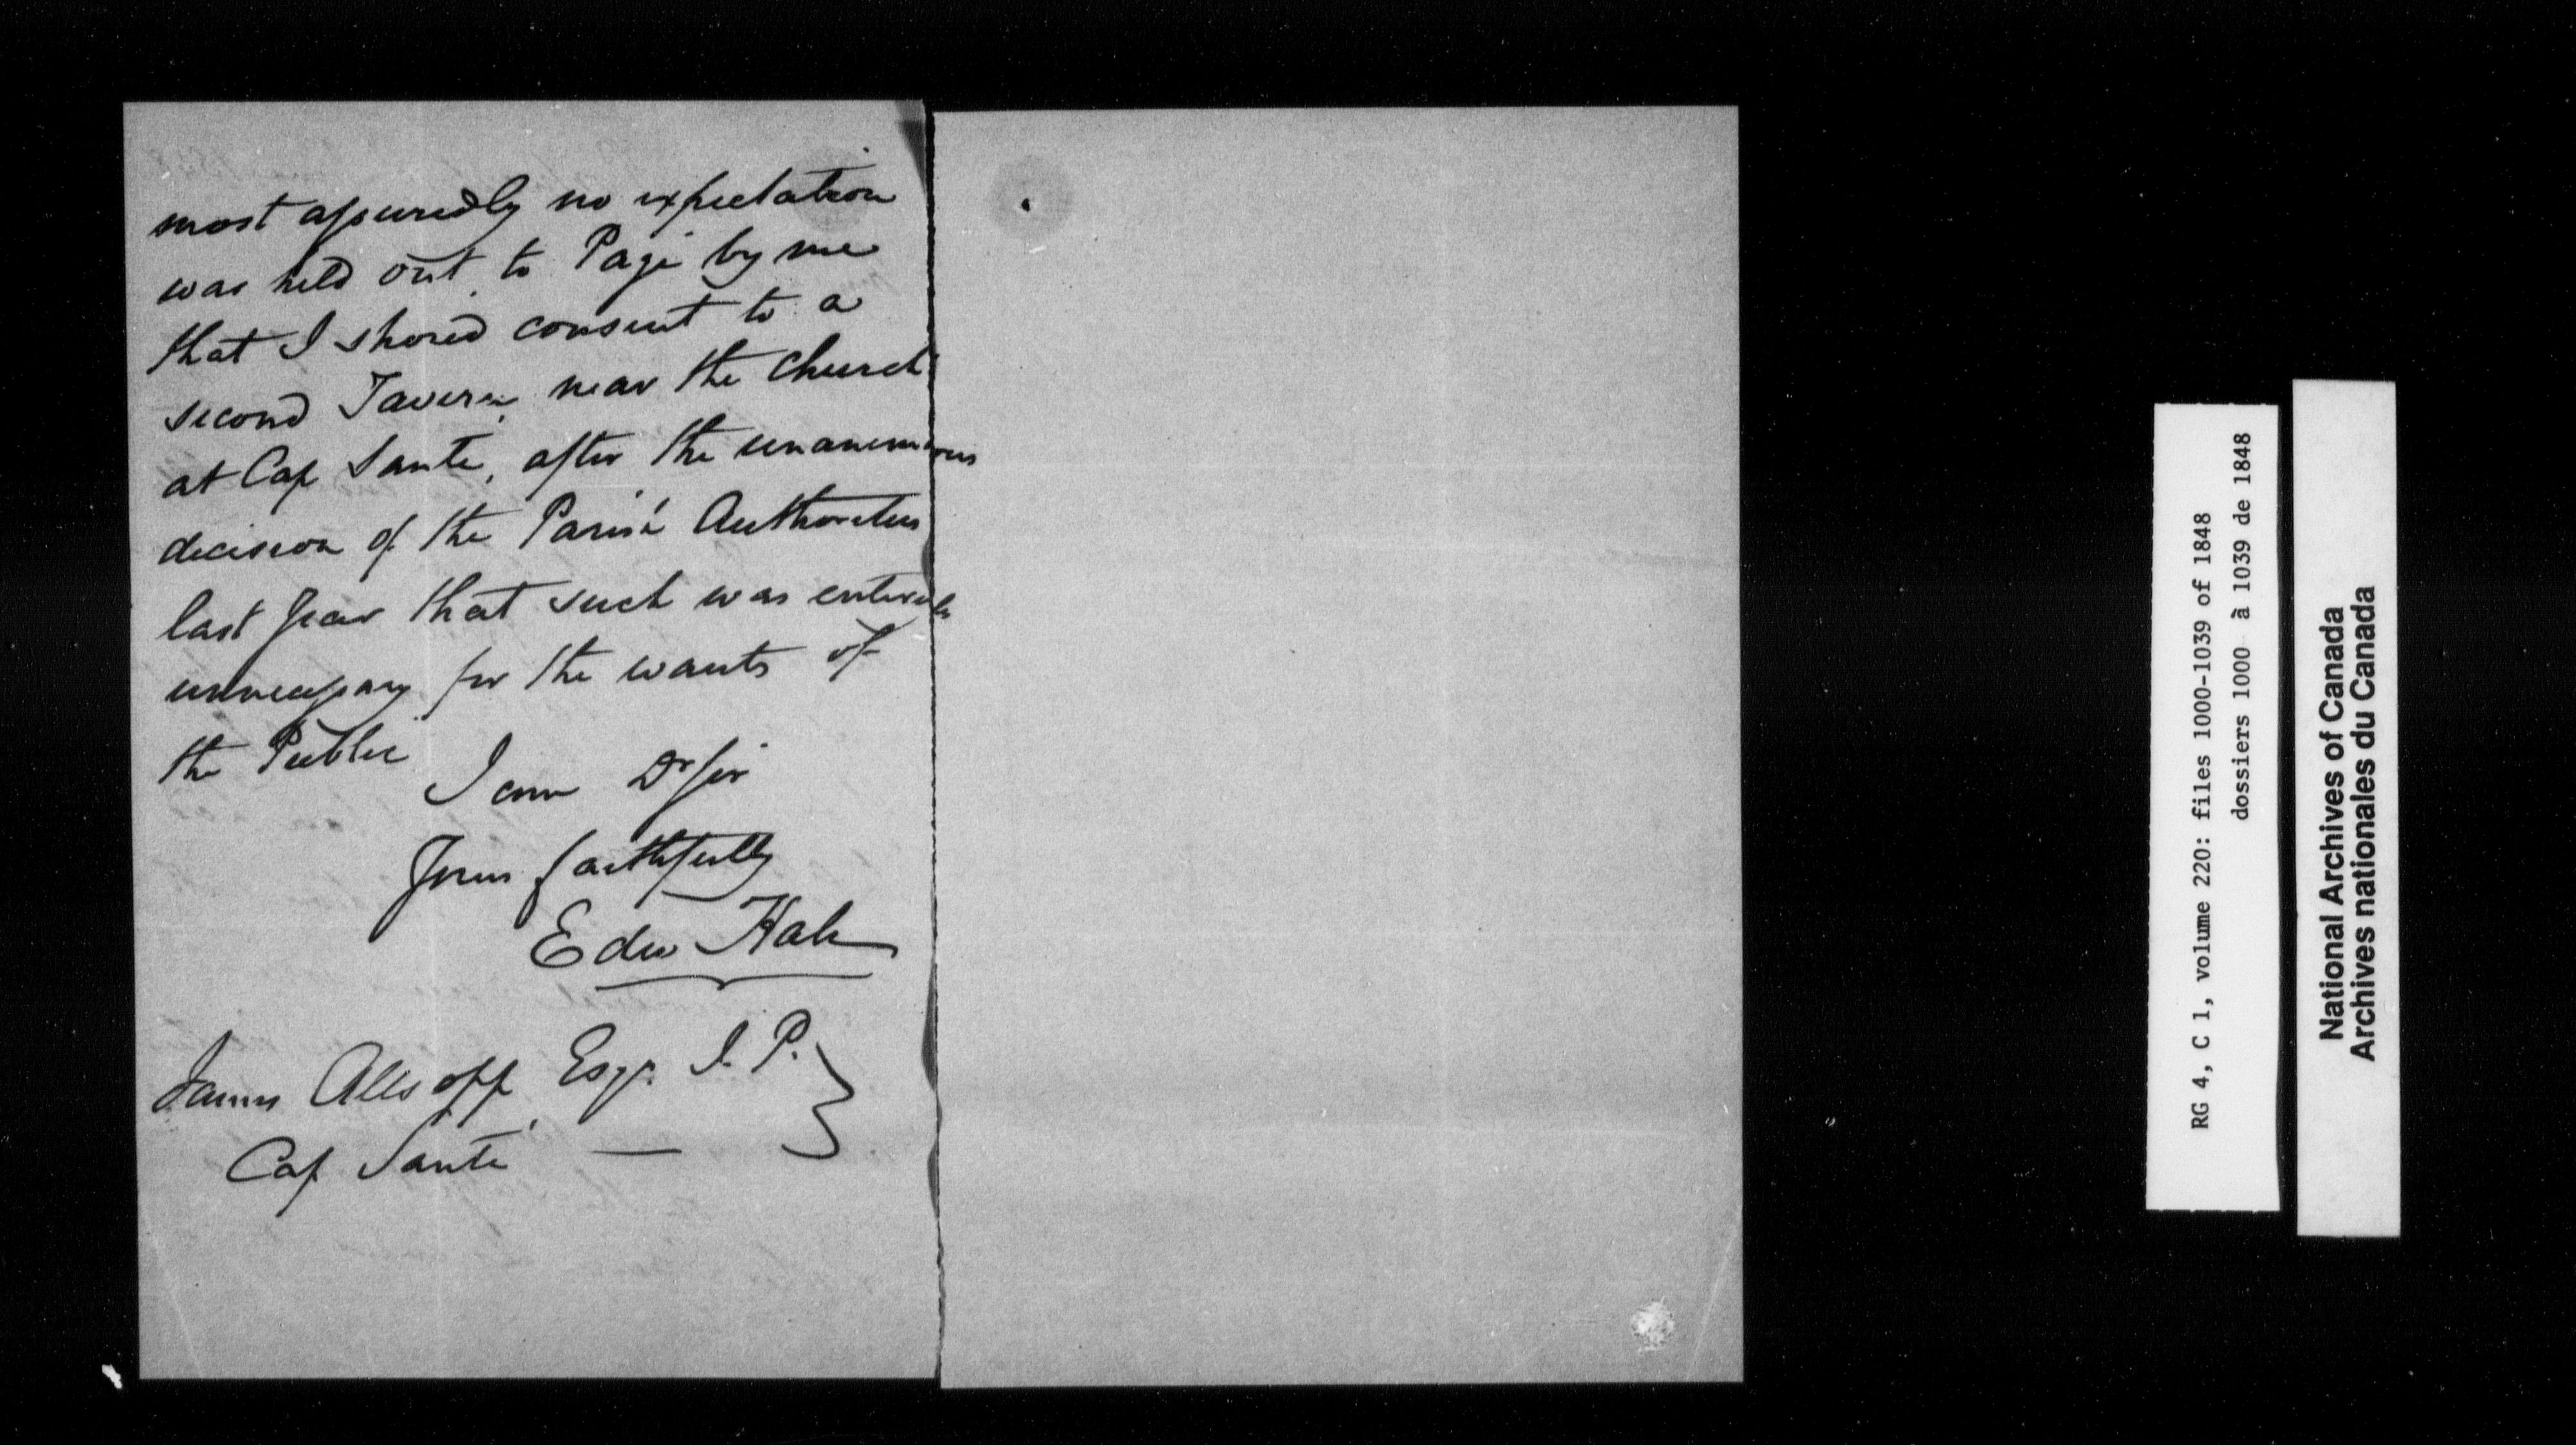 most assuredly no expectation
was held out to Pagé by me
that I should consent to a
second Tavern near the Church
at Cap Santé, after the unanimous
decision of the Parish Authorities
last year that such was entirely
unnecessary for the wants of
the Public
I am Dr Sir
Yours faithfully
Edw Hale
James Allsopp Esqr. J. P.
Cap Santé —
RG 4, C 1, volume 220: files 1000-1039 of 1848
dossiers 1000 à 1039 de 1848
National Archives of Canada
Archives nationales du Canada